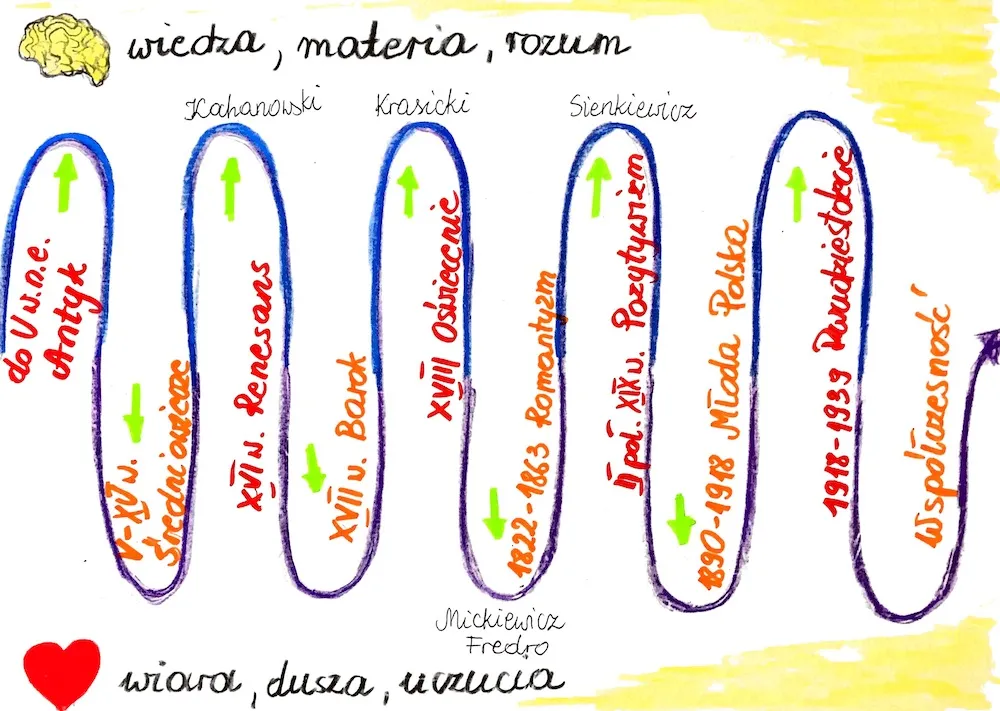 wiedza, materia, rozum
Kochanowski
Krasicki
Sienkiewicz
do V w.n.e.
Antyk
V-XV w.
Średniowiecze
XVI w. Renesans
XVII w. Barok
XVIII Oświecenie
1822-1863 Romantyzm
II poł. XIX w. Pozytywizm
1890-1918 Młoda Polska
1918-1939 Dwudziestolecie
Współczesność
Mickiewicz
Fredro
wiara, dusza, uczucia